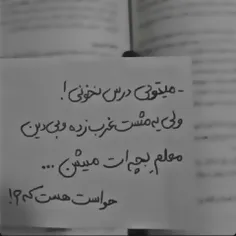 - میتونی درس نخونی!
ولی یه مشت غرب زده و بی دین
معلم بچه ات میشن ...
حواست هست که؟!